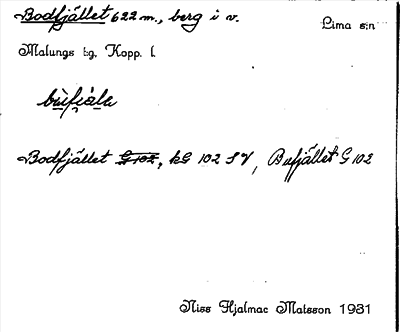 Bodfjället 622 m., berg i v. Lima s:n
Malungs tg, Kopp. l.
bùfjàla
Bodfjället G 102, kG 102 SV, Bufjället G 102
Niss Hjalmar Matsson 1931